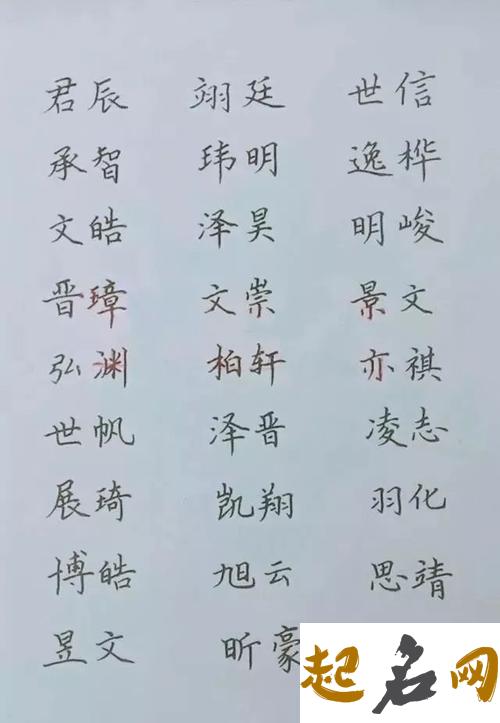 君辰 翊廷 世信
承智 玮明 逸桦
文皓 泽昊 明峻
晋璋 文崇 景文
弘渊 柏轩 亦祺
世帆 泽晋 凌志
展琦 凯翔 羽化
博皓 旭云 思靖
昱文 昕豪
起名网